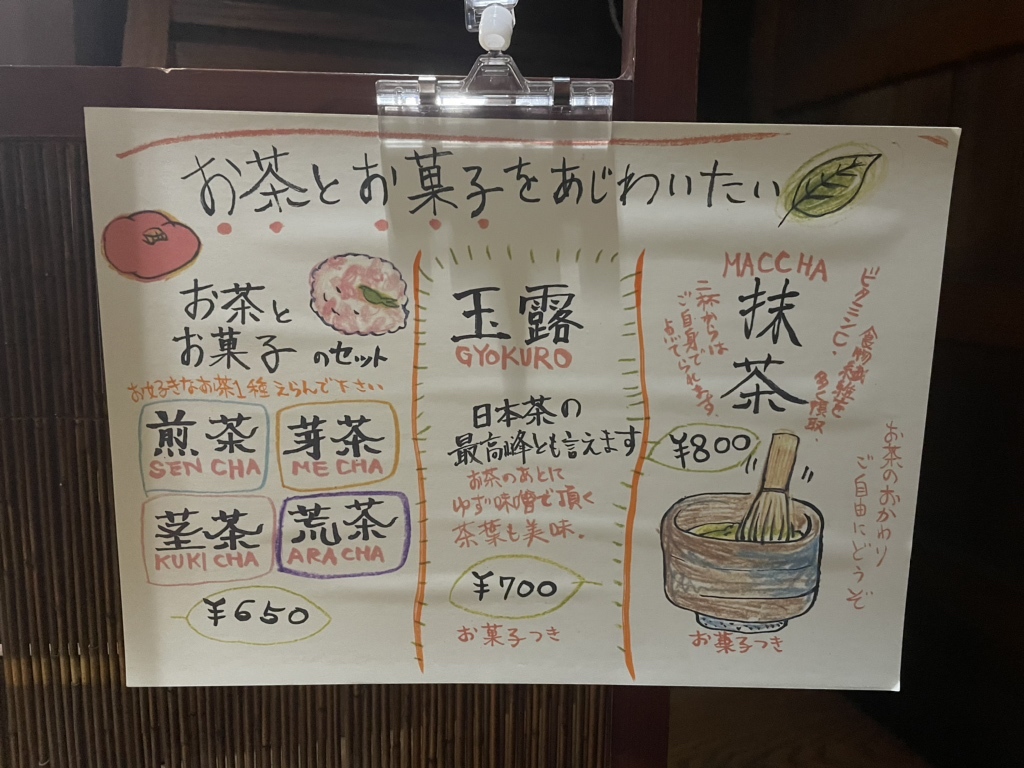 お茶とお菓子をあじわいたい
お茶と
お菓子のセット
お好きなお茶1種えらんで下さい
煎茶
SEN CHA
芽茶
ME CHA
茎茶
KUKI CHA
荒茶
ARA CHA
¥650
玉露
GYOKURO
日本茶の
最高峰とも言えます
お茶のあとに
ゆず味噌で頂く
茶葉も美味。
¥700
お菓子つき
MACCHA
抹茶
ビタミンC、
食物繊維を
多く摂取、
二杯からは
ご自身で
¥800
お茶のおかわり
ご自由にどうぞ
お菓子つき